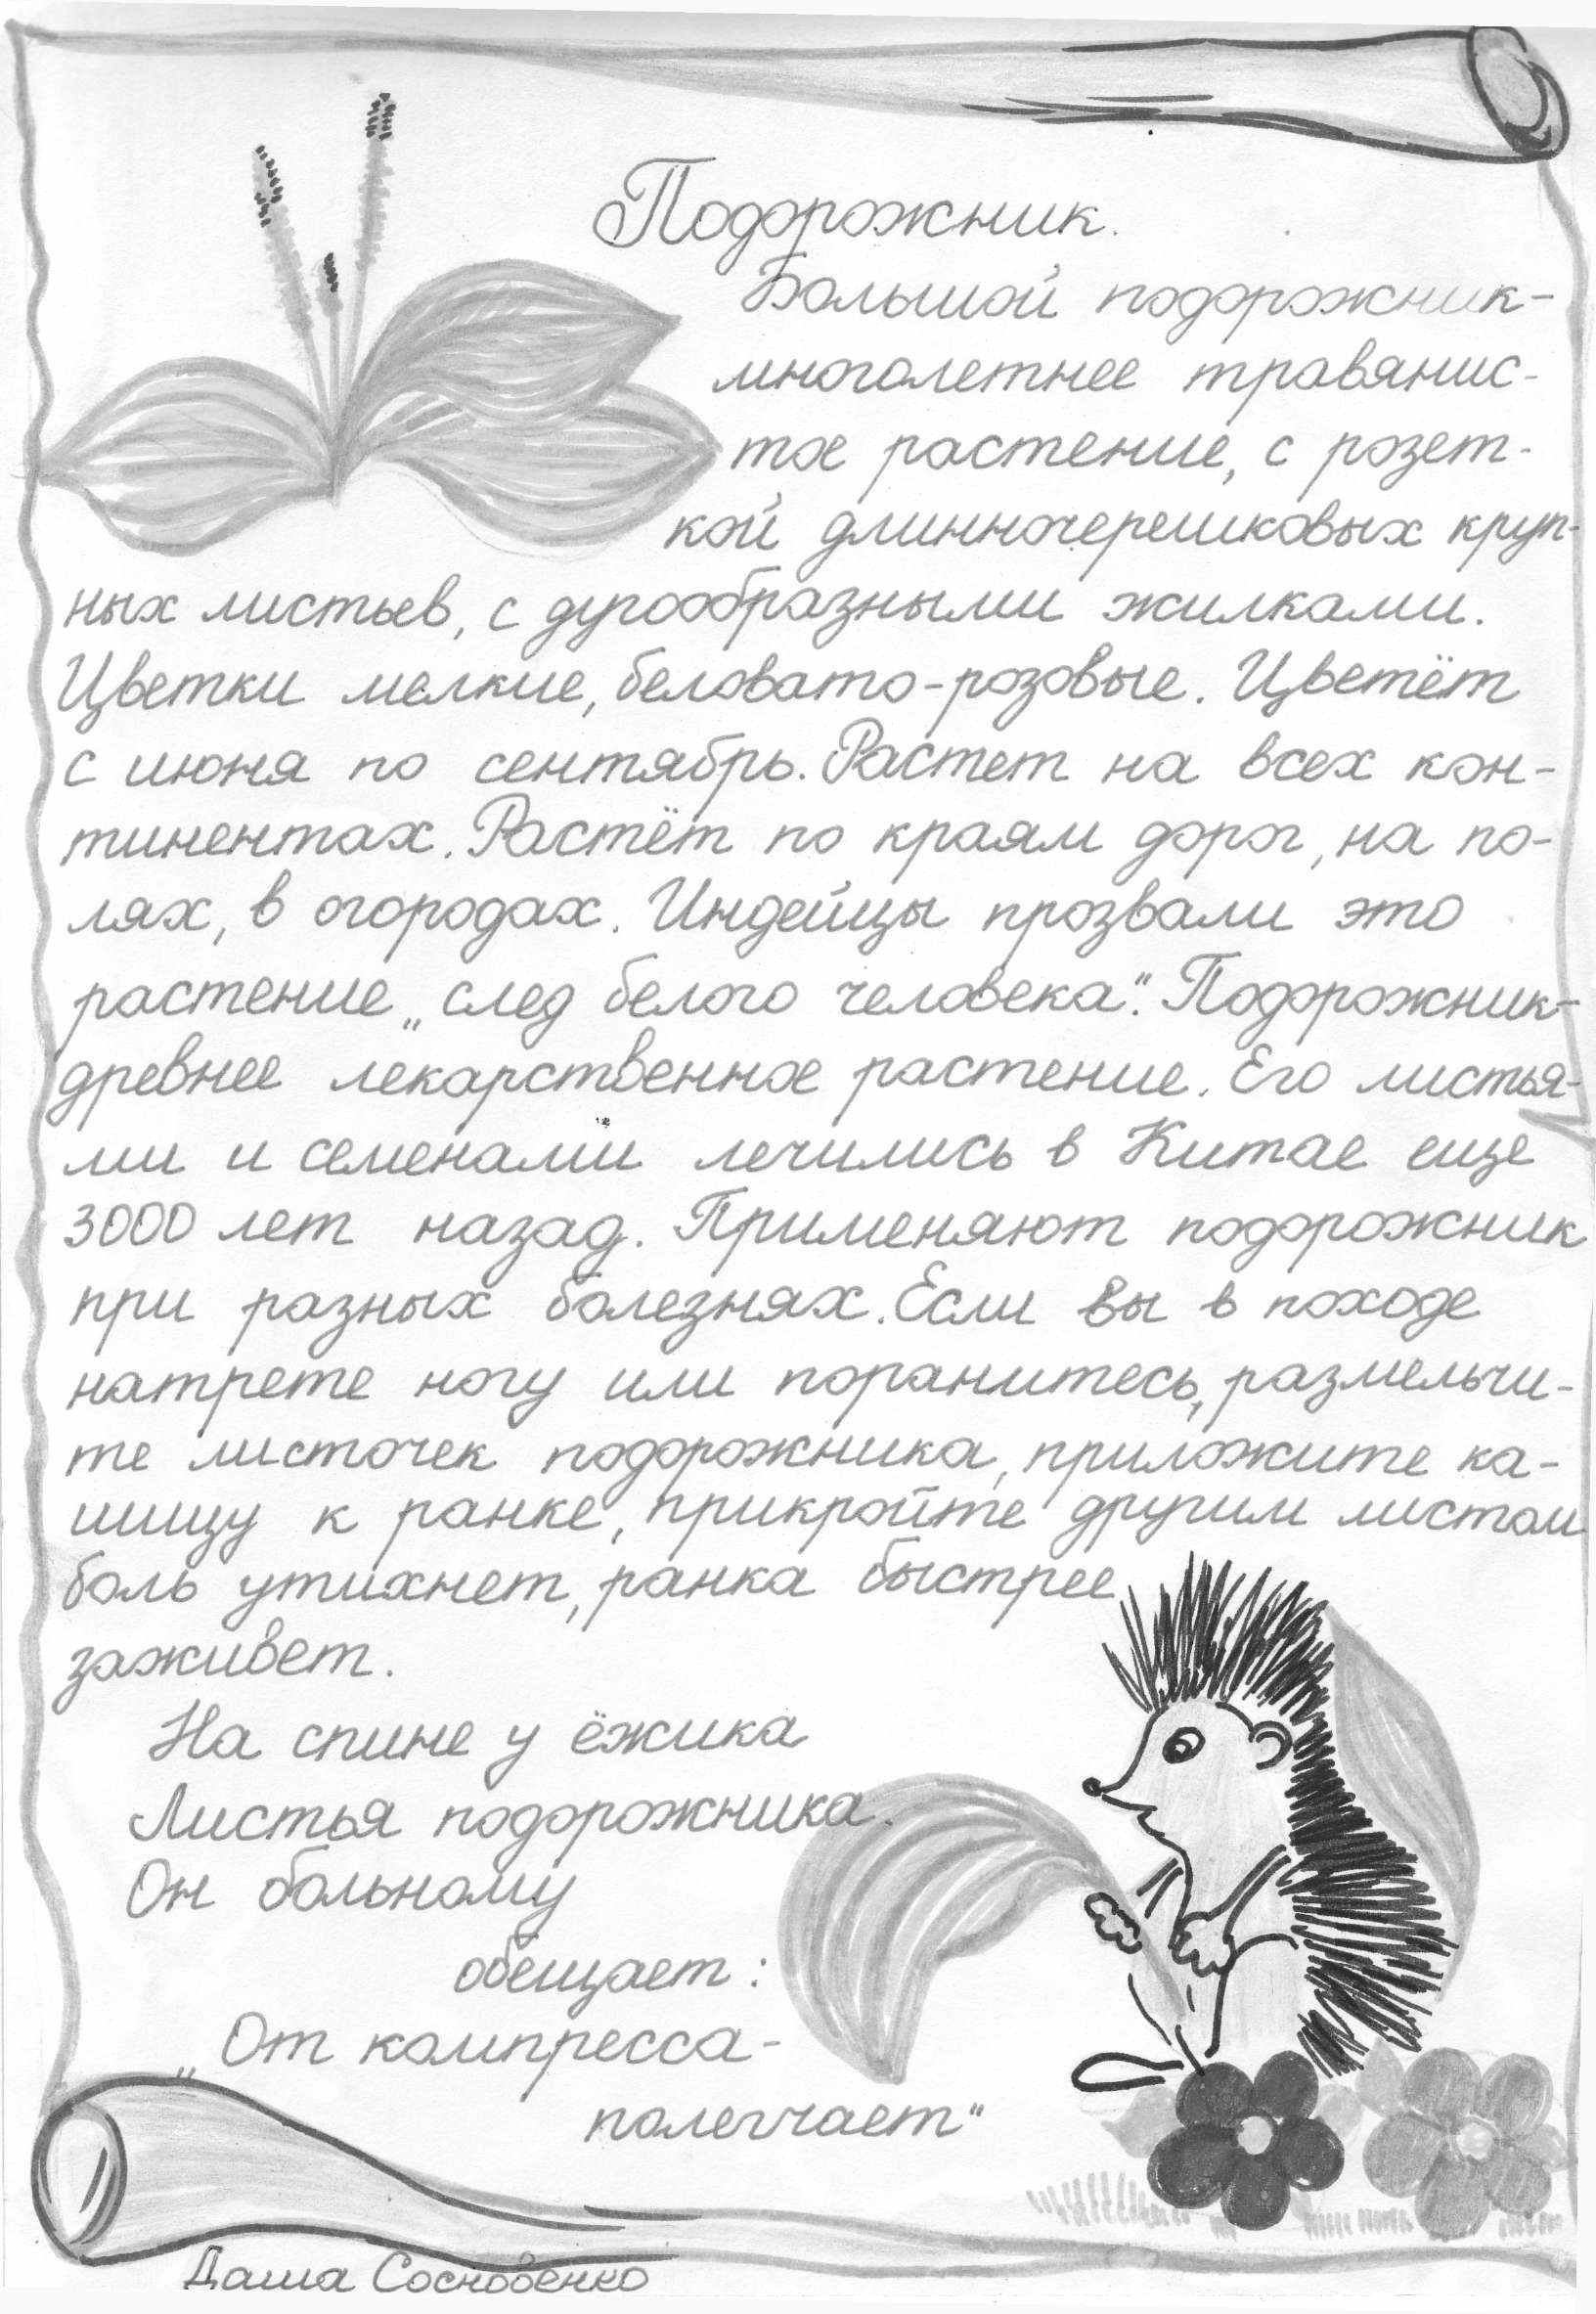 Подорожник.
Большой подорожник-
многолетнее травянис-
тое растение, с розет-
кой длинночерешковых круп-
ных листьев, с дугообразными жилками.
Цветки мелкие, беловато-розовые. Цветёт
с июня по сентябрь. Растет на всех кон-
тинентах. Растёт по краям дорог, на по-
лях, в огородах. Индейцы прозвали это
растение „след белого человека". Подорожник-
древнее лекарственное растение. Его листья-
ми и семенами лечились в Китае еще
3000 лет назад. Применяют подорожник
при разных болезнях. Если вы в походе
натрете ногу или поранитесь, размельчи-
те листочек подорожника, приложите ка-
шицу к ранке, прикройте другим листом
боль утихнет, ранка быстрее
заживет.
На спине у ёжика
Листья подорожника.
Он больному
обещает:
„От компресса-
полегчает"
Даша Сосновенко